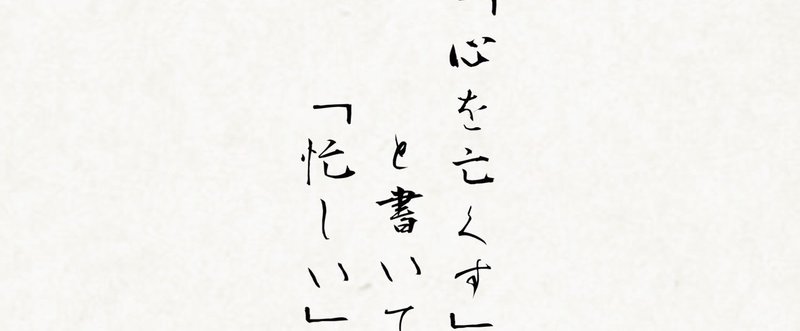 「心を亡くす」
と書いて
「忙しい」